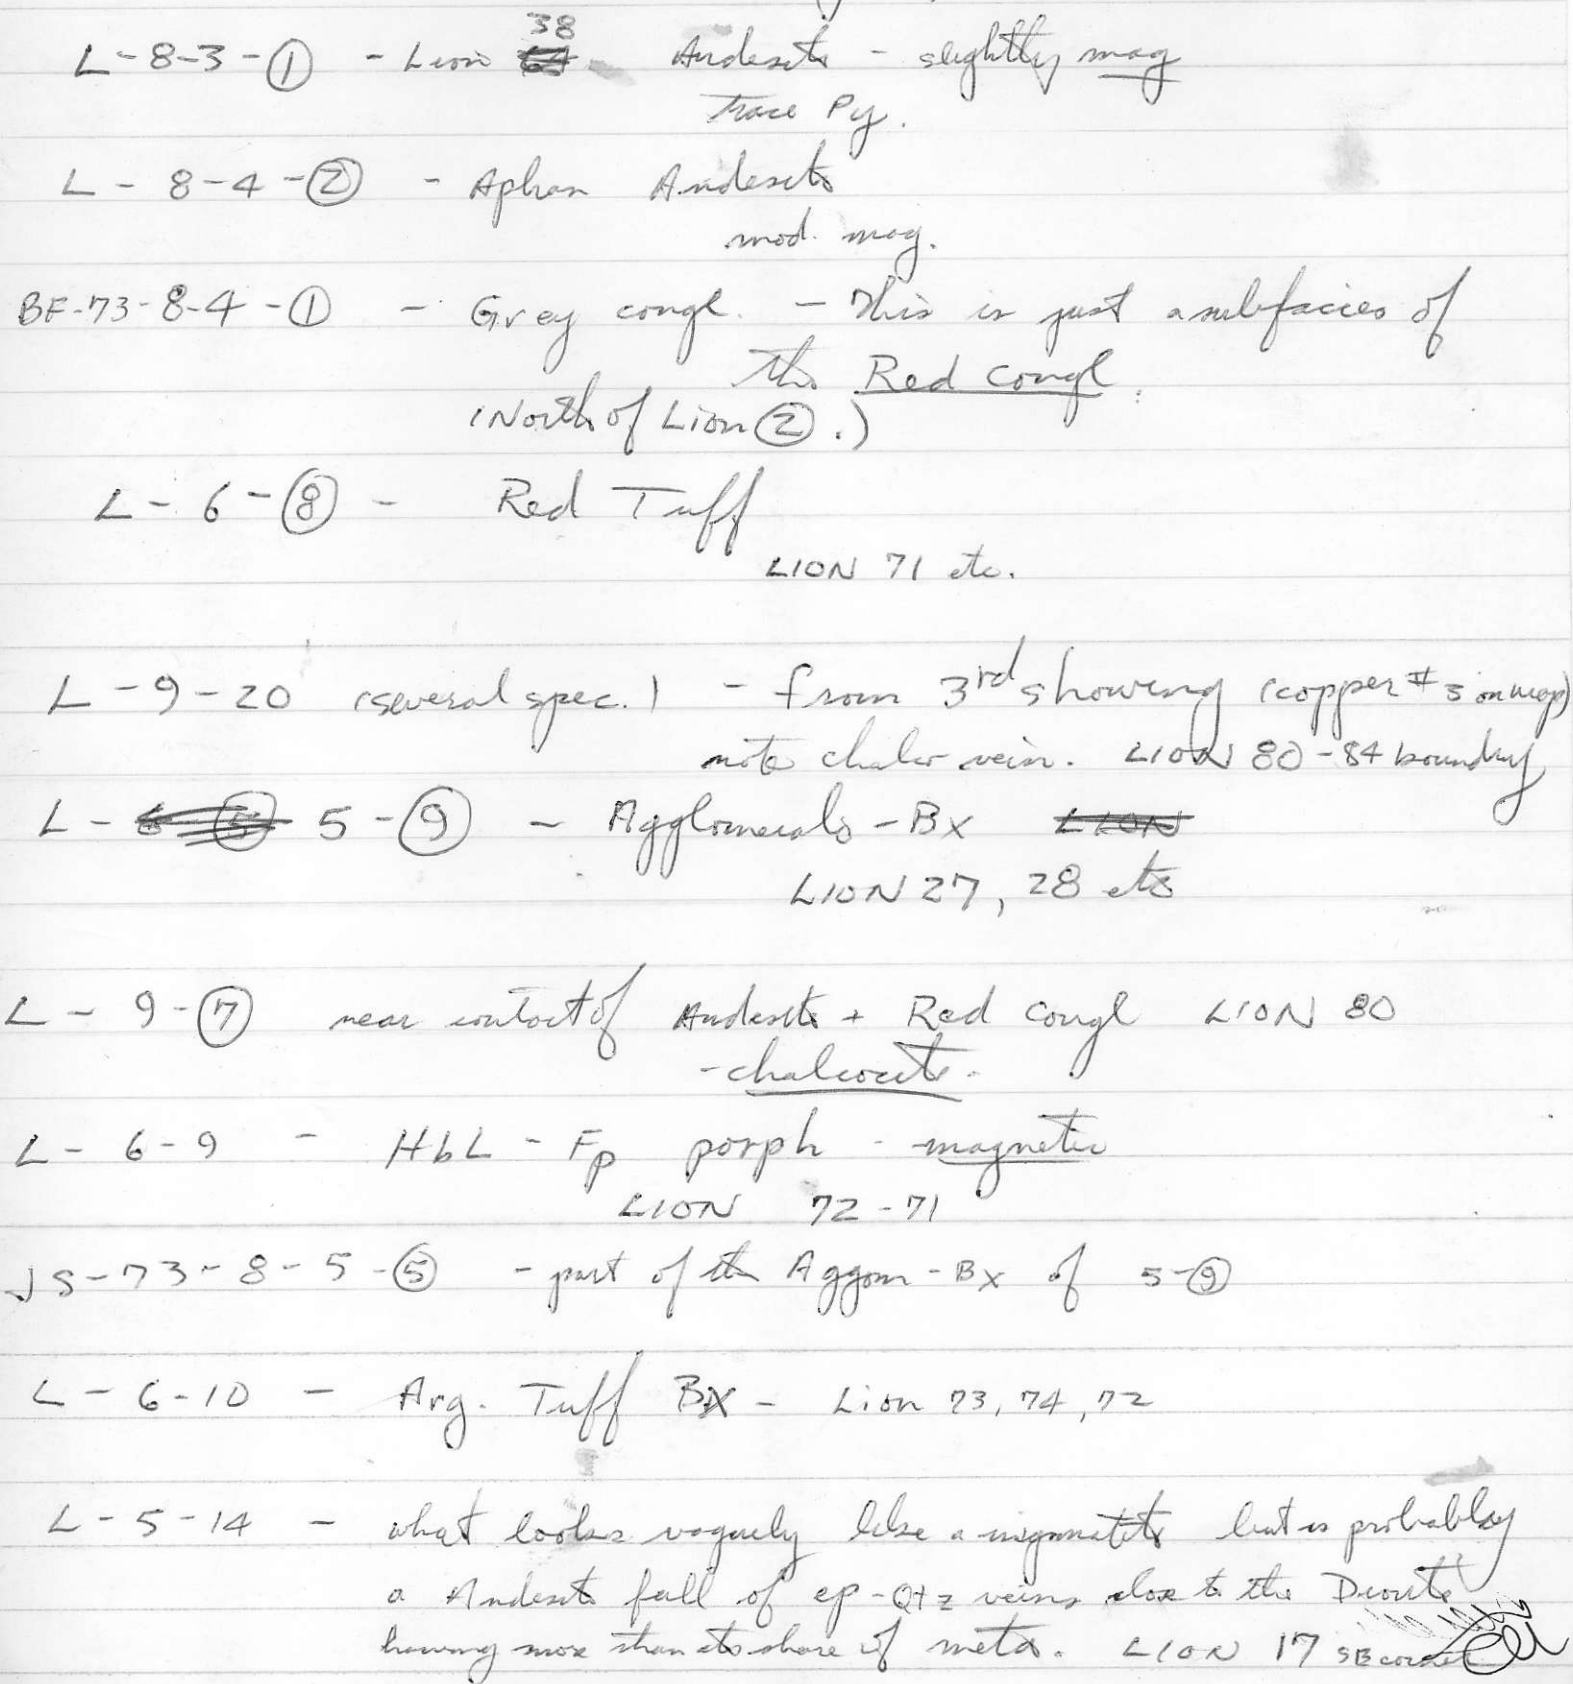 38
L-8-3-① - Lion Andesite - slightly mag
trace Py.
L - 8-4-② - Aphan Andesite
mod. mag.
BF-73-8-4-① - Grey congl. - This is just a subfacies of
the Red Congl.
(North of Lion ②.)
L-6-⑧ - Red Tuff
LION 71 etc.
L-9-20 (several spec.) - from 3rd showing (copper #3 on map)
note chalco vein. LION 80-84 boundry
L- 5-⑨ - Agglomerate-Bx LION
LION 27, 28 etc
L- 9-⑦ near contact of Andesite + Red Congl LION 80
-chalcocite.
L- 6-9 - HbL-Fp porph - magnetic
LION 72-71
JS-73-8-5-⑤ - part of the Aggom-Bx of 5-⑨
L-6-10 - Arg. Tuff Bx - Lion 73, 74, 72
L-5-14 - what looks vaguely like a migmatite but is probably
a Andesite full of ep-Qtz veins close to the Diorite
having more than its share of meta. LION 17 SE corner